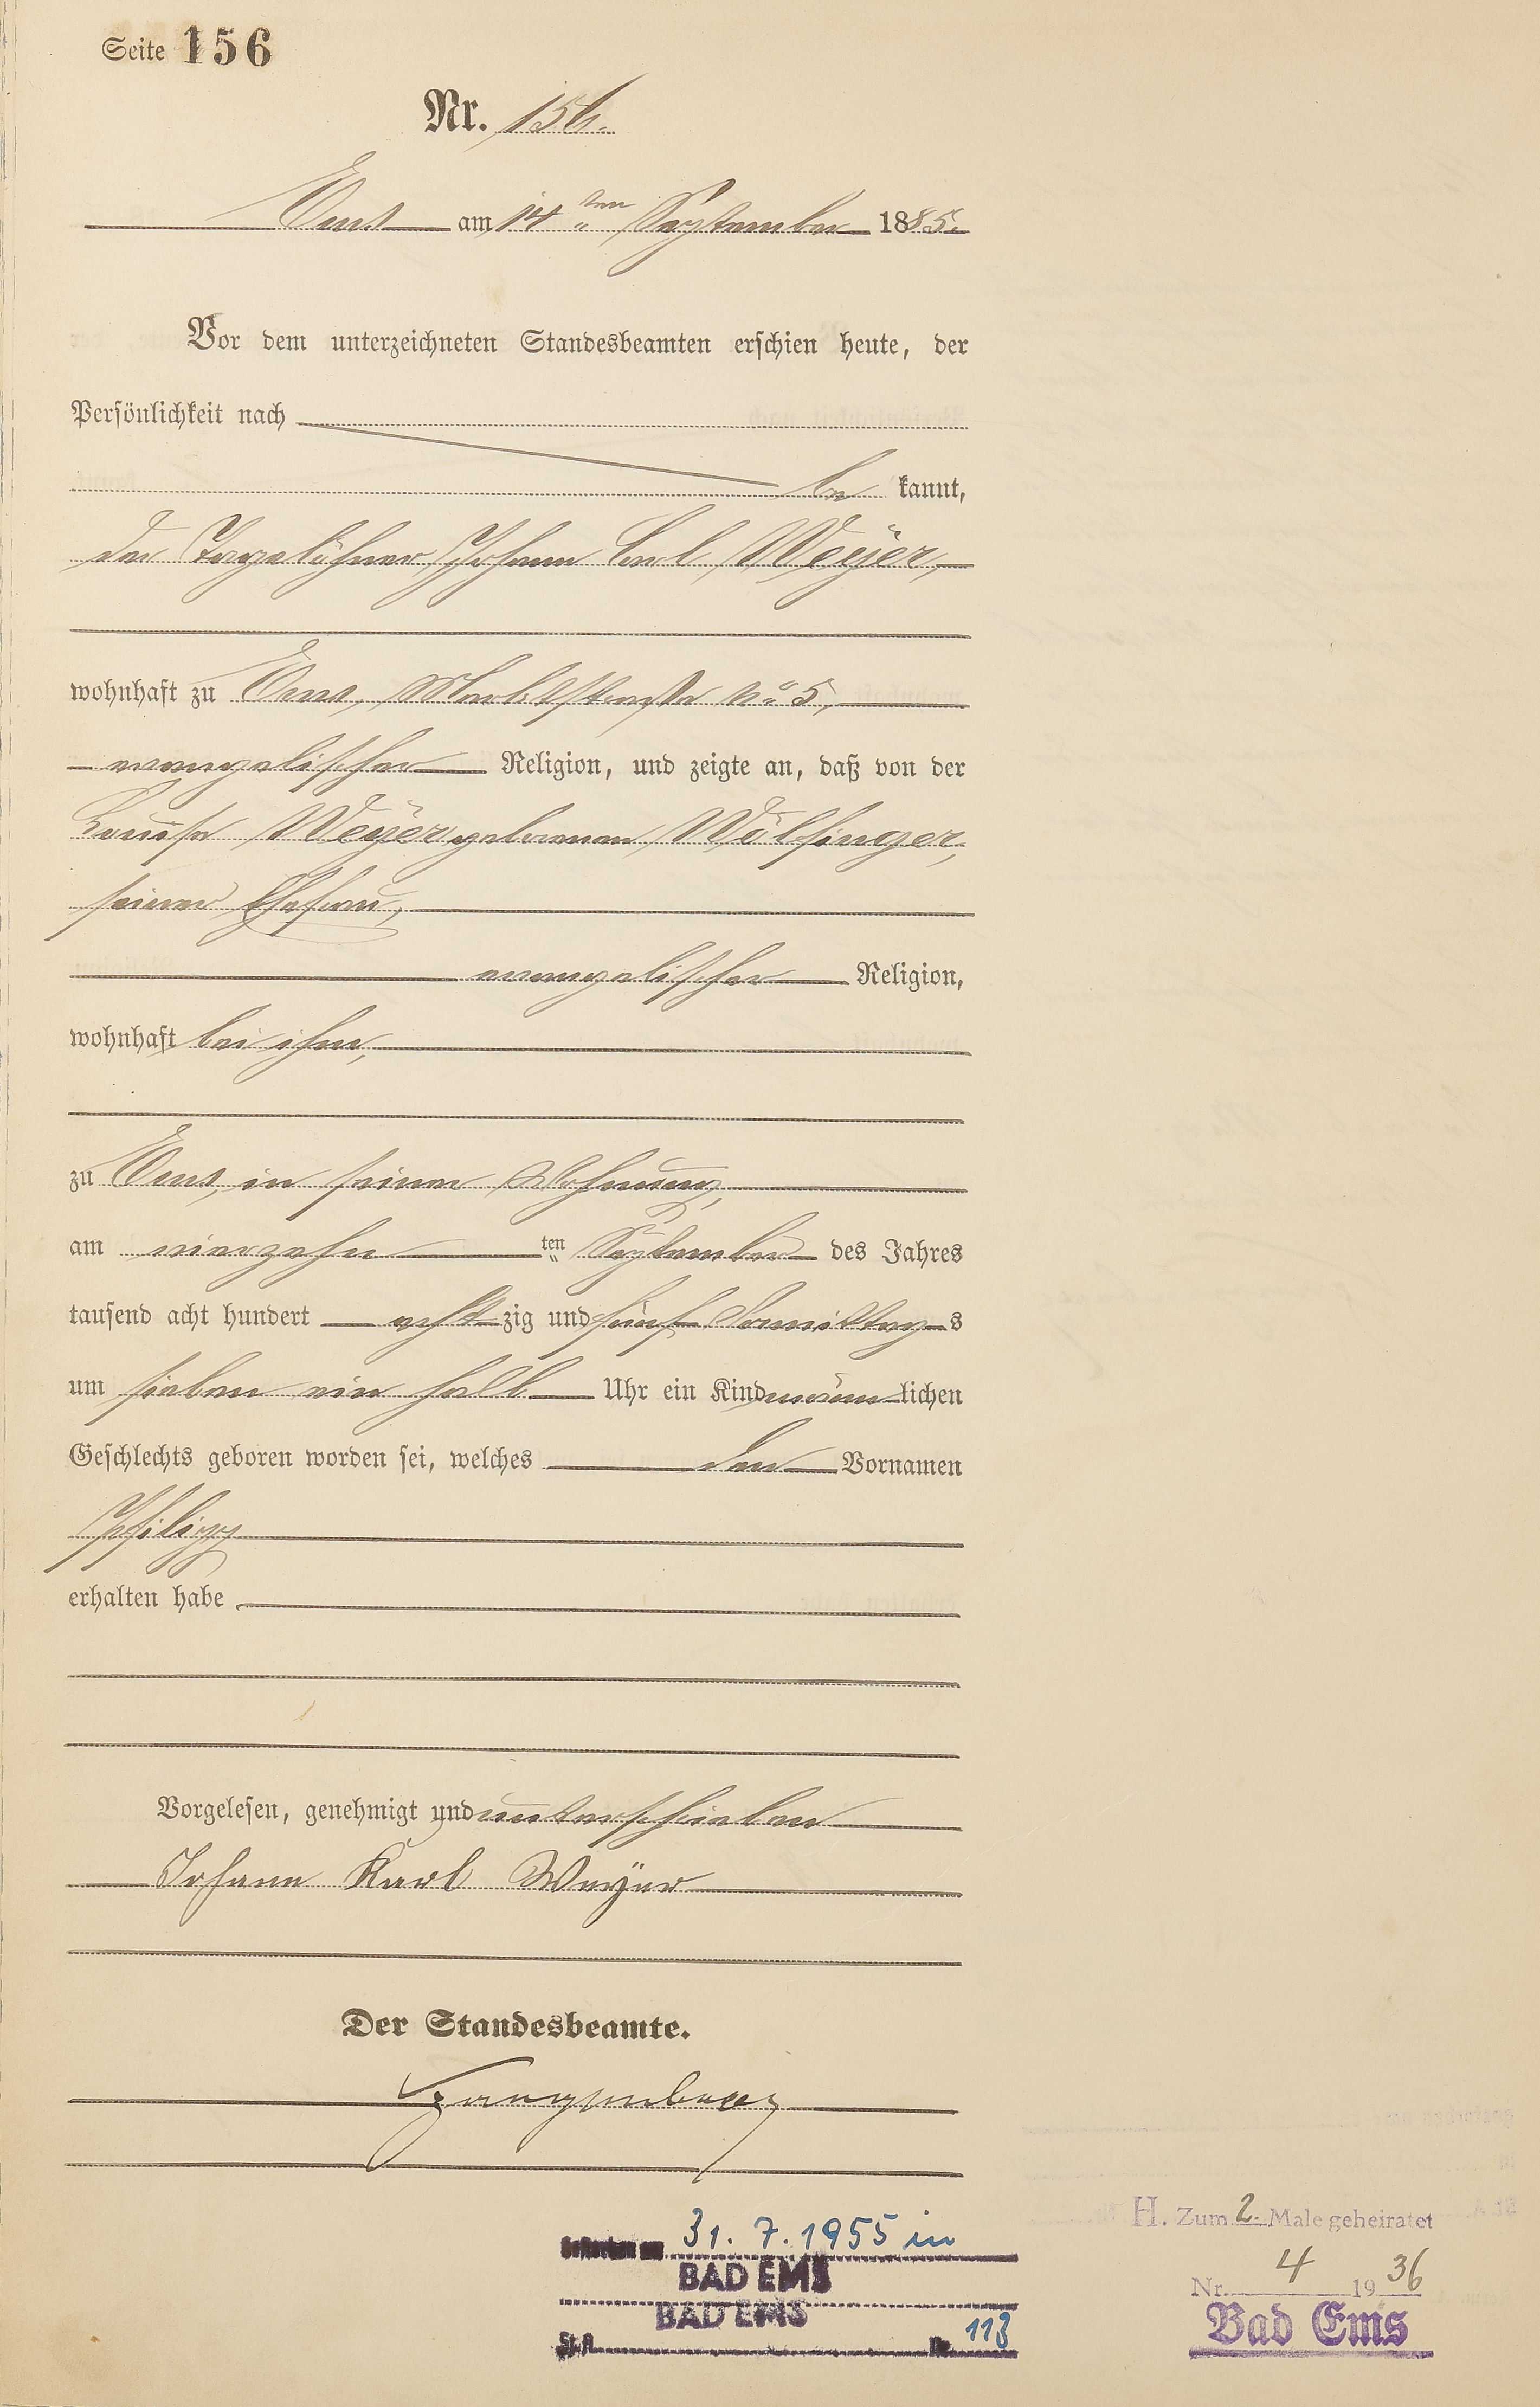 Seite 156
Nr. 156.
Ems am 14ten September 1885.
Vor dem unterzeichneten Standesbeamten erschien heute, der
Persönlichkeit nach
be kannt,
der Tagelöhner Johann Carl Weyer,
wohnhaft zu Ems, Marktstraße No 5,
evangelischer Religion, und zeigte an, daß von der
Louise Weyer geborenen Wölfinger,
seiner Ehefrau,
evangelischer Religion,
wohnhaft bei ihm,
zu Ems, in seiner Wohnung,
am vierzehn ten September des Jahres
tausend acht hundert acht zig und fünf Vormittags
um sieben ein halb Uhr ein Kind männlichen
Geschlechts geboren worden sei, welches den Vornamen
Philipp
erhalten habe
Vorgelesen, genehmigt und unterschrieben
Johann Karl Weyer
Der Standesbeamte.
Gestorben am 31. 7. 1955 in
BAD EMS
BAD EMS
St.A. Nr. 113
H. Zum 2. Male geheiratet
Nr. 4 1936
Bad Ems